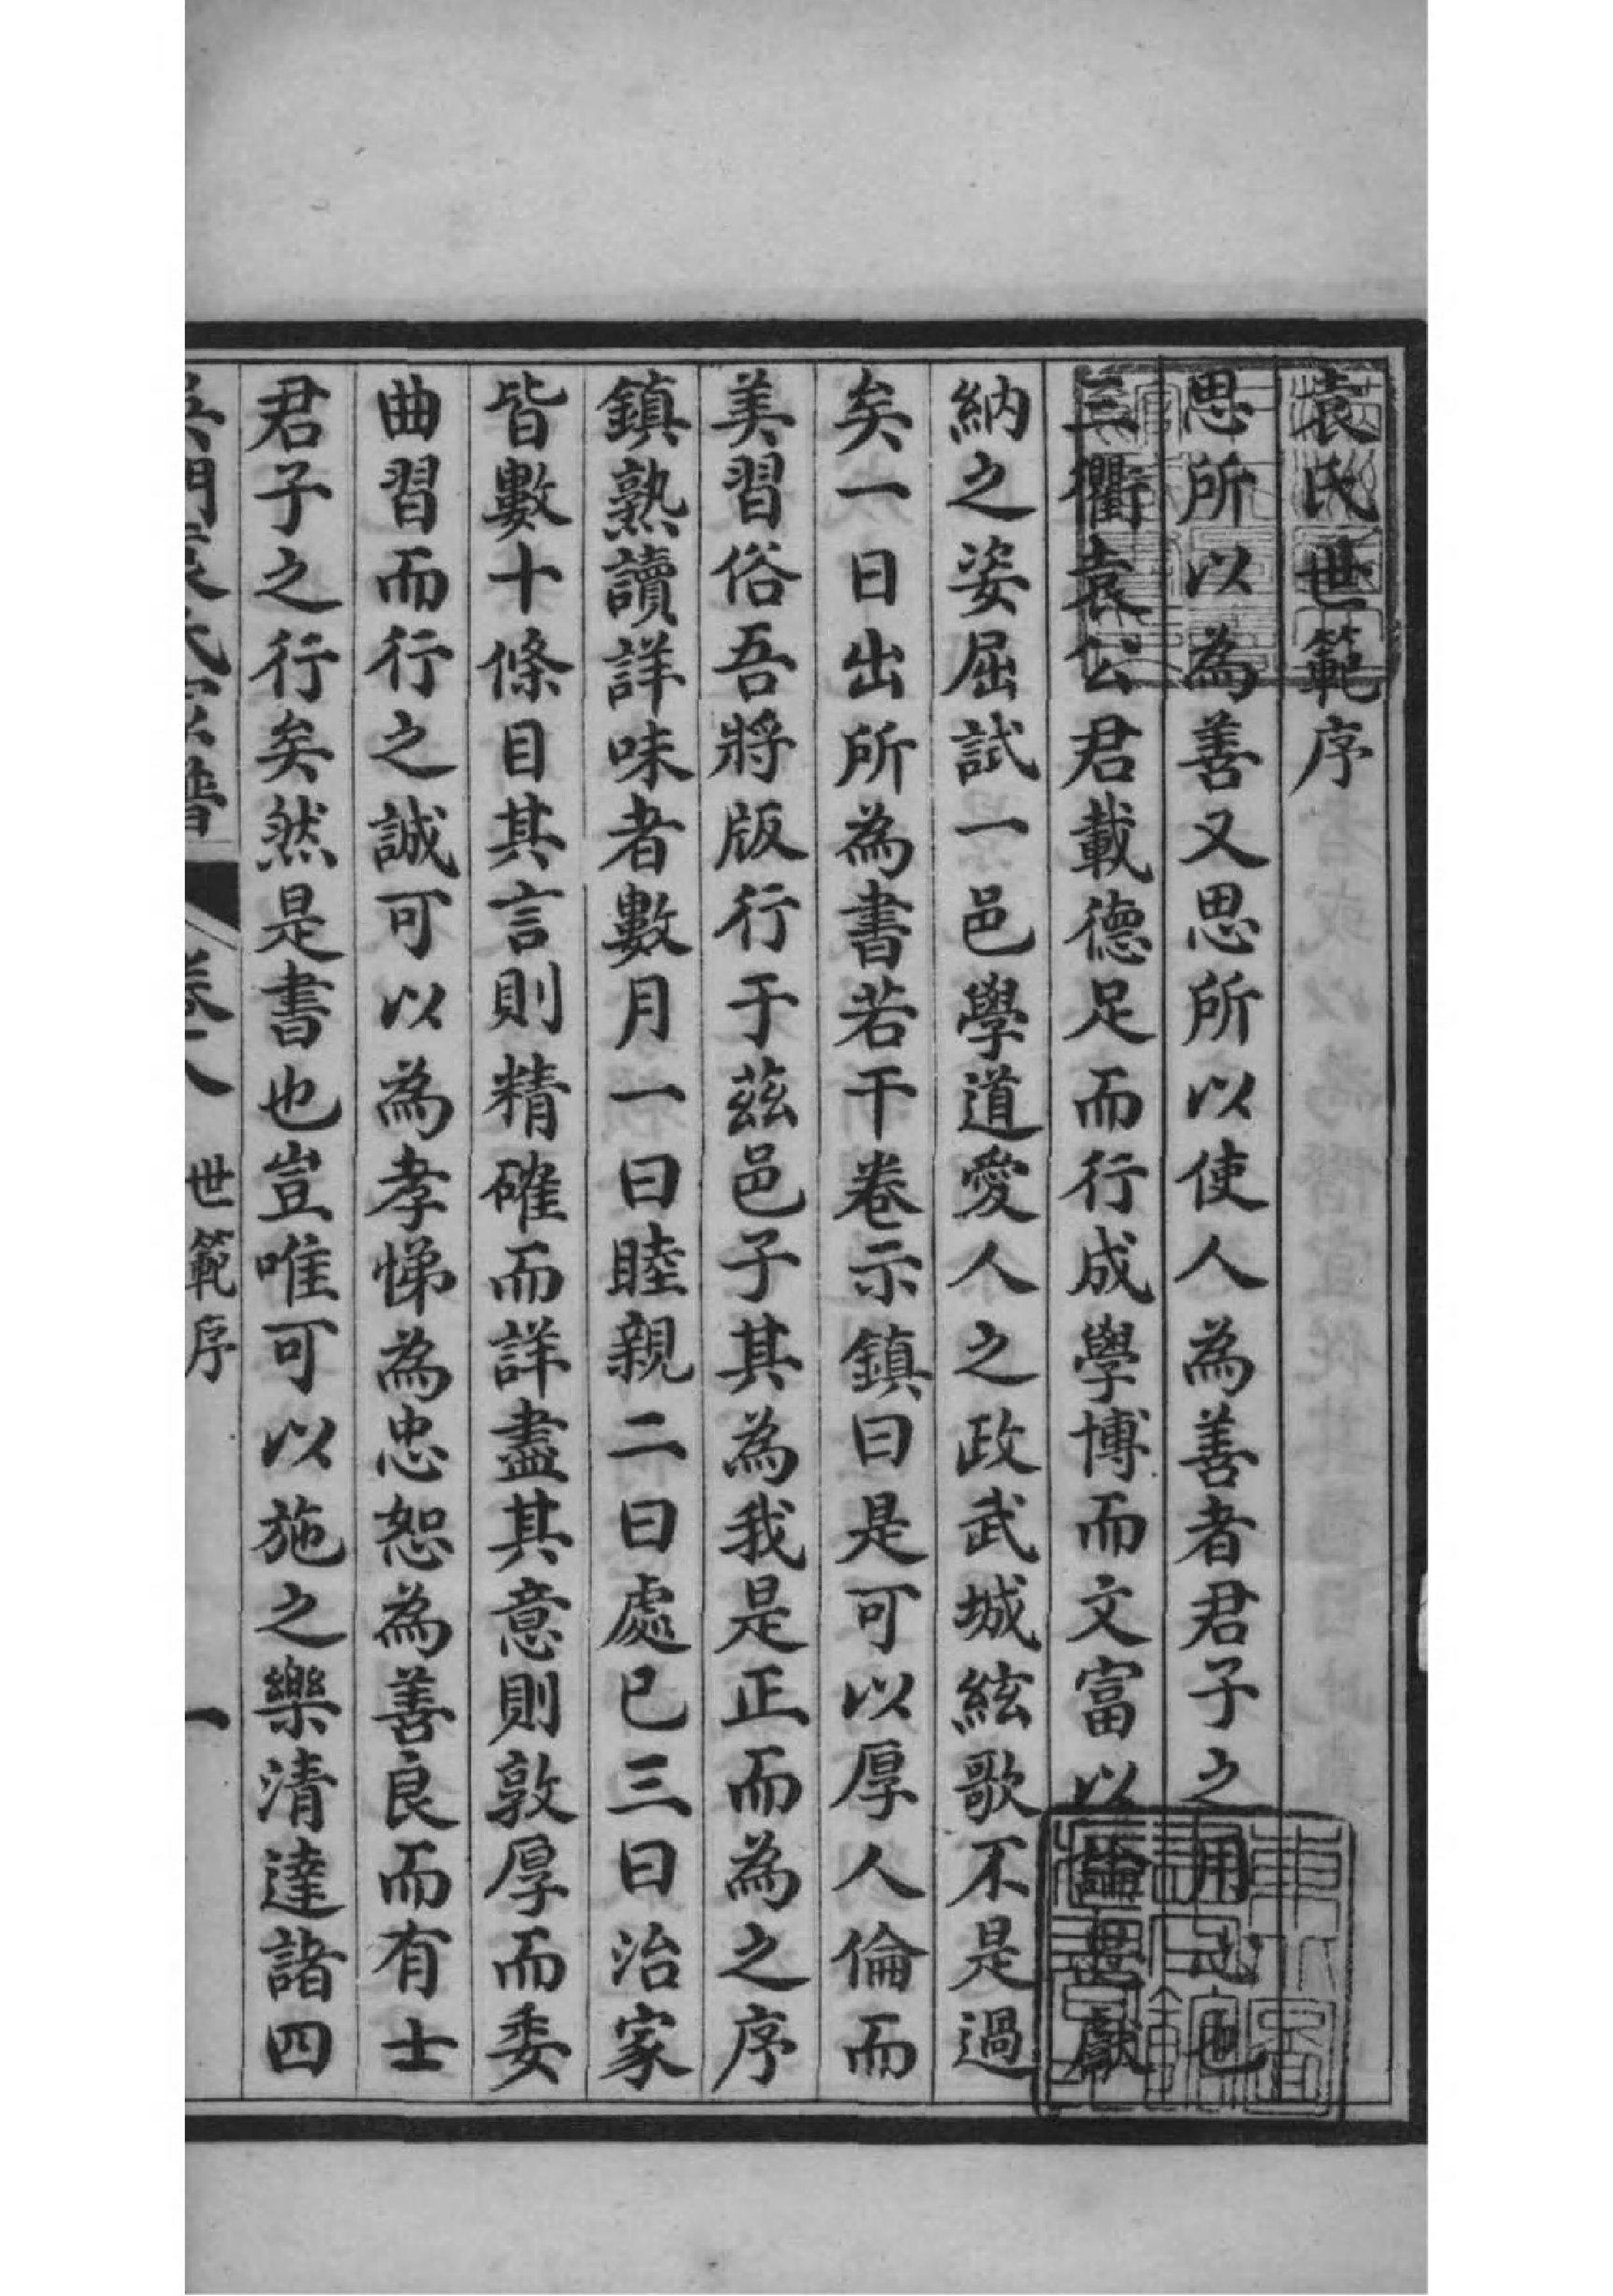 袁氏世範序
思所以為善又思所以使人為善者君子之用心也
三衢袁公君載德足而行成學博而文富以論思獻
納之姿屈試一邑學道愛人之政武城絃歌不是過
矣一日出所為書若干卷示鎮曰是可以厚人倫而
美習俗吾將版行于茲邑子其為我是正而為之序
鎮熟讀詳味者數月一曰睦親二曰處已三曰治家
皆數十條目其言則精確而詳盡其意則敦厚而委
曲習而行之誠可以為孝悌為忠恕為善良而有士
君子之行矣然是書也豈唯可以施之樂清達諸四
吳門袁氏家譜 卷八 世範序 一